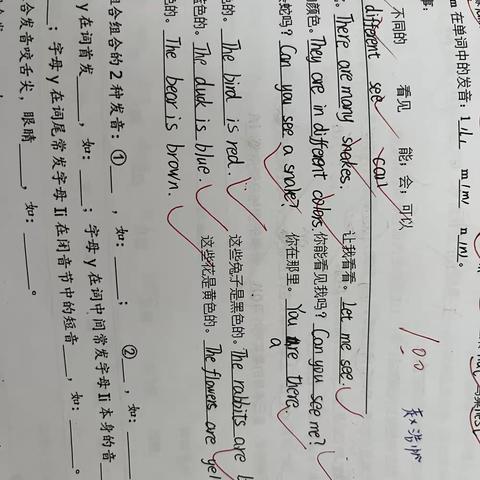 事:
m 在单词中的发音: l /l/ m /m/ n /n/。
不同的 看见 能;会;可以
different see can
. There are many snakes. 让我看看。Let me see.
颜色。They are in different colors. 你能看见我吗? Can you see me?
蛇吗? Can you see a snake? 你在那里。You are there.
色的。The bird is red. 这些兔子是黑色的。The rabbits are b
蓝色的。The duck is blue. 这些花是黄色的。The flowers are yel
色的。The bear is brown.
组合的 2 种发音: ①___, 如:___; ②___, 如:___
y 在词首发___, 如:___; 字母 y 在词中间常发字母 Ii 本身的音
___; 字母 y 在词尾常发字母 Ii 在闭音节中的短音___, 如:___。
合发音咬舌尖, 眼睛___, 如:___。
100